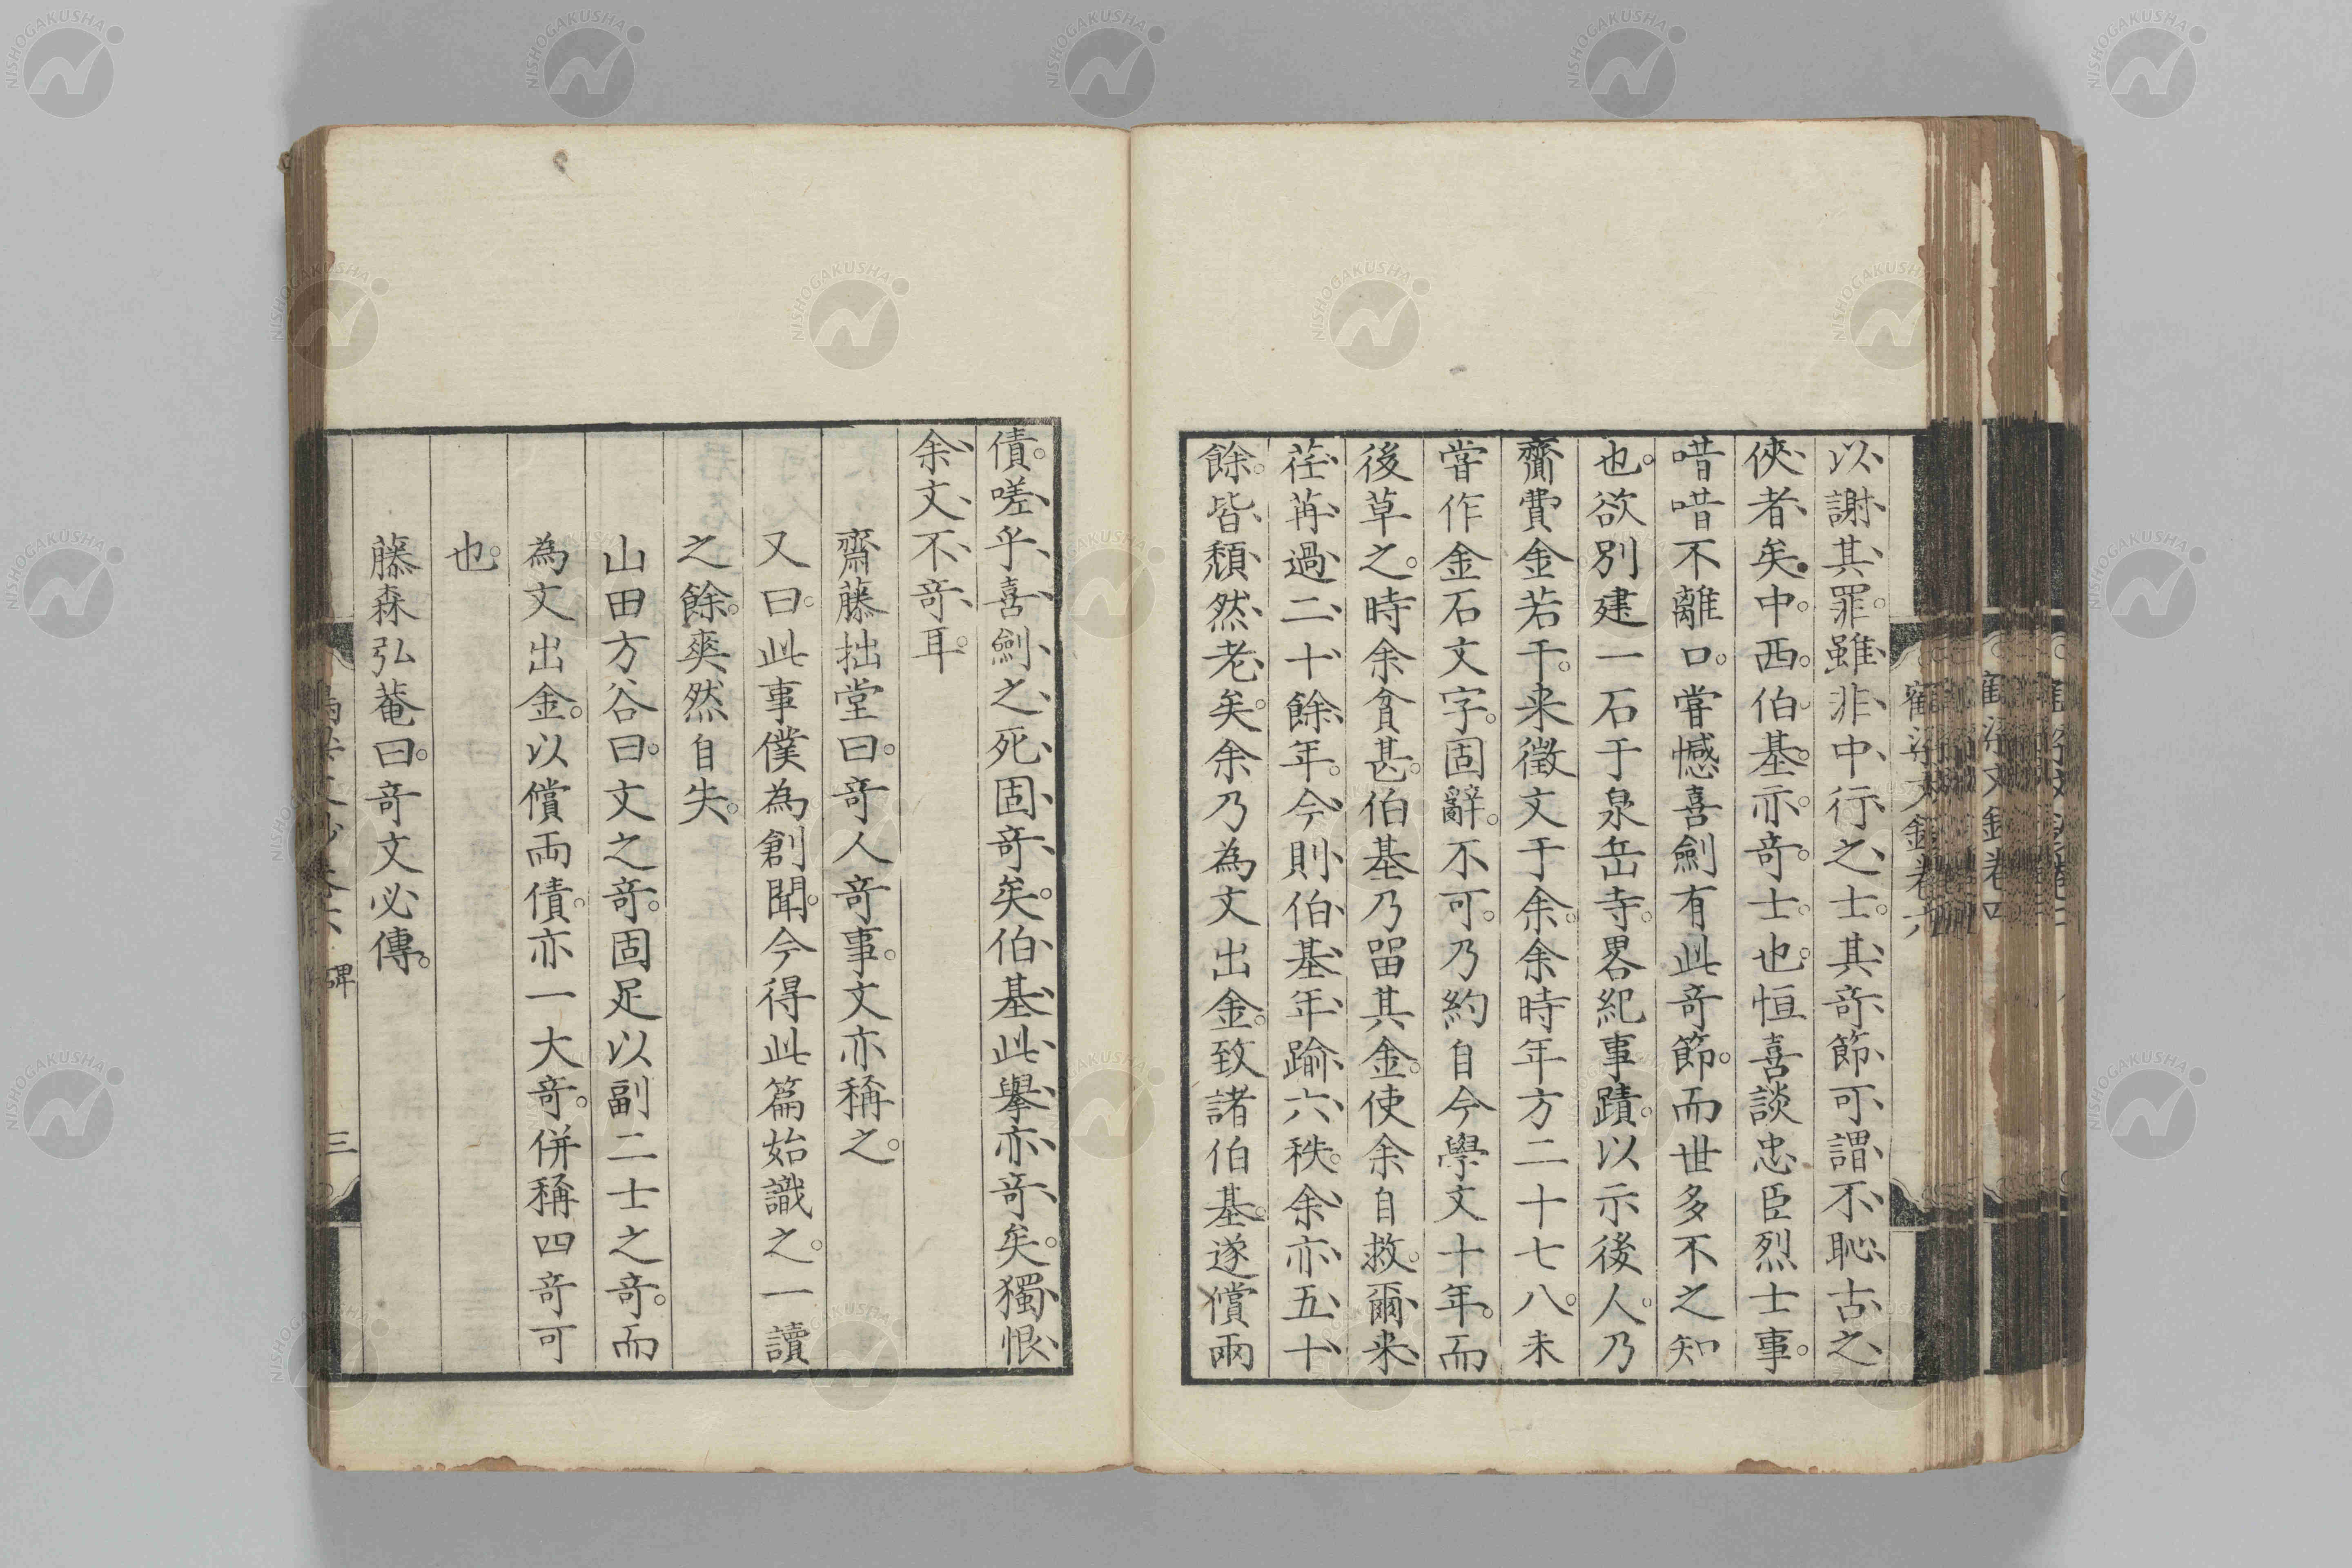 以謝其罪。雖非中行之士。其竒節可謂不恥古之
俠者矣。中西伯基亦竒士也。恒喜談忠臣烈士事。
唶唶不離口。甞憾喜劍有此竒節。而世多不之知
也。欲別建一石于泉岳寺。畧紀事蹟。以示後人。乃
齎費金若干。来徵文于余。余時年方二十七八。未
甞作金石文字。固辭。不可。乃約自今學文十年。而
後草之。時余貧甚。伯基乃留其金。使余自救。爾来
荏苒過二十餘年。今則伯基年踰六秩。余亦五十
餘。皆頽然老矣。余乃為文出金。致諸伯基。遂償兩
債。嗟乎喜劍之死固竒矣。伯基此擧亦竒矣。獨恨
余文不竒耳。
齋藤拙堂曰。竒人竒事。文亦稱之。
又曰。此事僕為創聞。今得此篇始識之。一讀
之餘。爽然自失。
山田方谷曰。文之竒。固足以副二士之竒。而
為文出金。以償兩債。亦一大竒。併稱四竒可
也。
藤森弘菴曰。竒文必傳。
碑
三
NISHOGAKUSHA